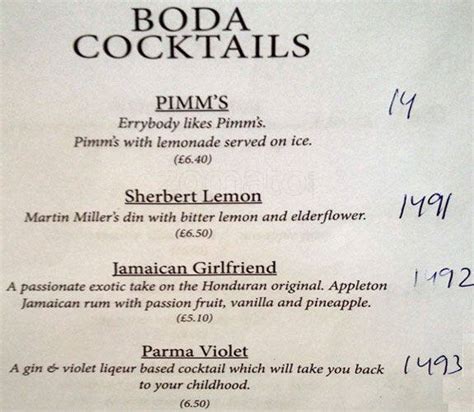 BODA
COCKTAILS
PIMM'S 14
Errybody likes Pimm's.
Pimm's with lemonade served on ice.
(£6.40)
Sherbert Lemon 1491
Martin Miller's din with bitter lemon and elderflower.
(£6.50)
Jamaican Girlfriend 1492
A passionate exotic take on the Honduran original. Appleton
Jamaican rum with passion fruit, vanilla and pineapple.
(£5.10)
Parma Violet 1493
A gin & violet liqeur based cocktail which will take you back
to your childhood.
(6.50)